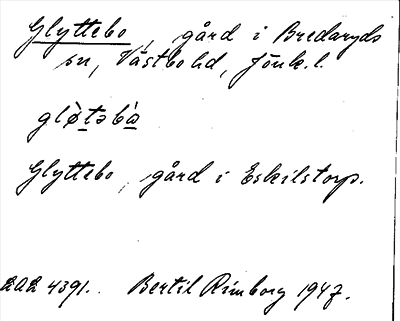 Glyttebo, gård i Bredaryds
sn, Västbo hd, Jönk.l.
glø̀təbà
Glyttebo, gård i Eskilstorp.
2A2 4391. Bertil Rimborg 1947.